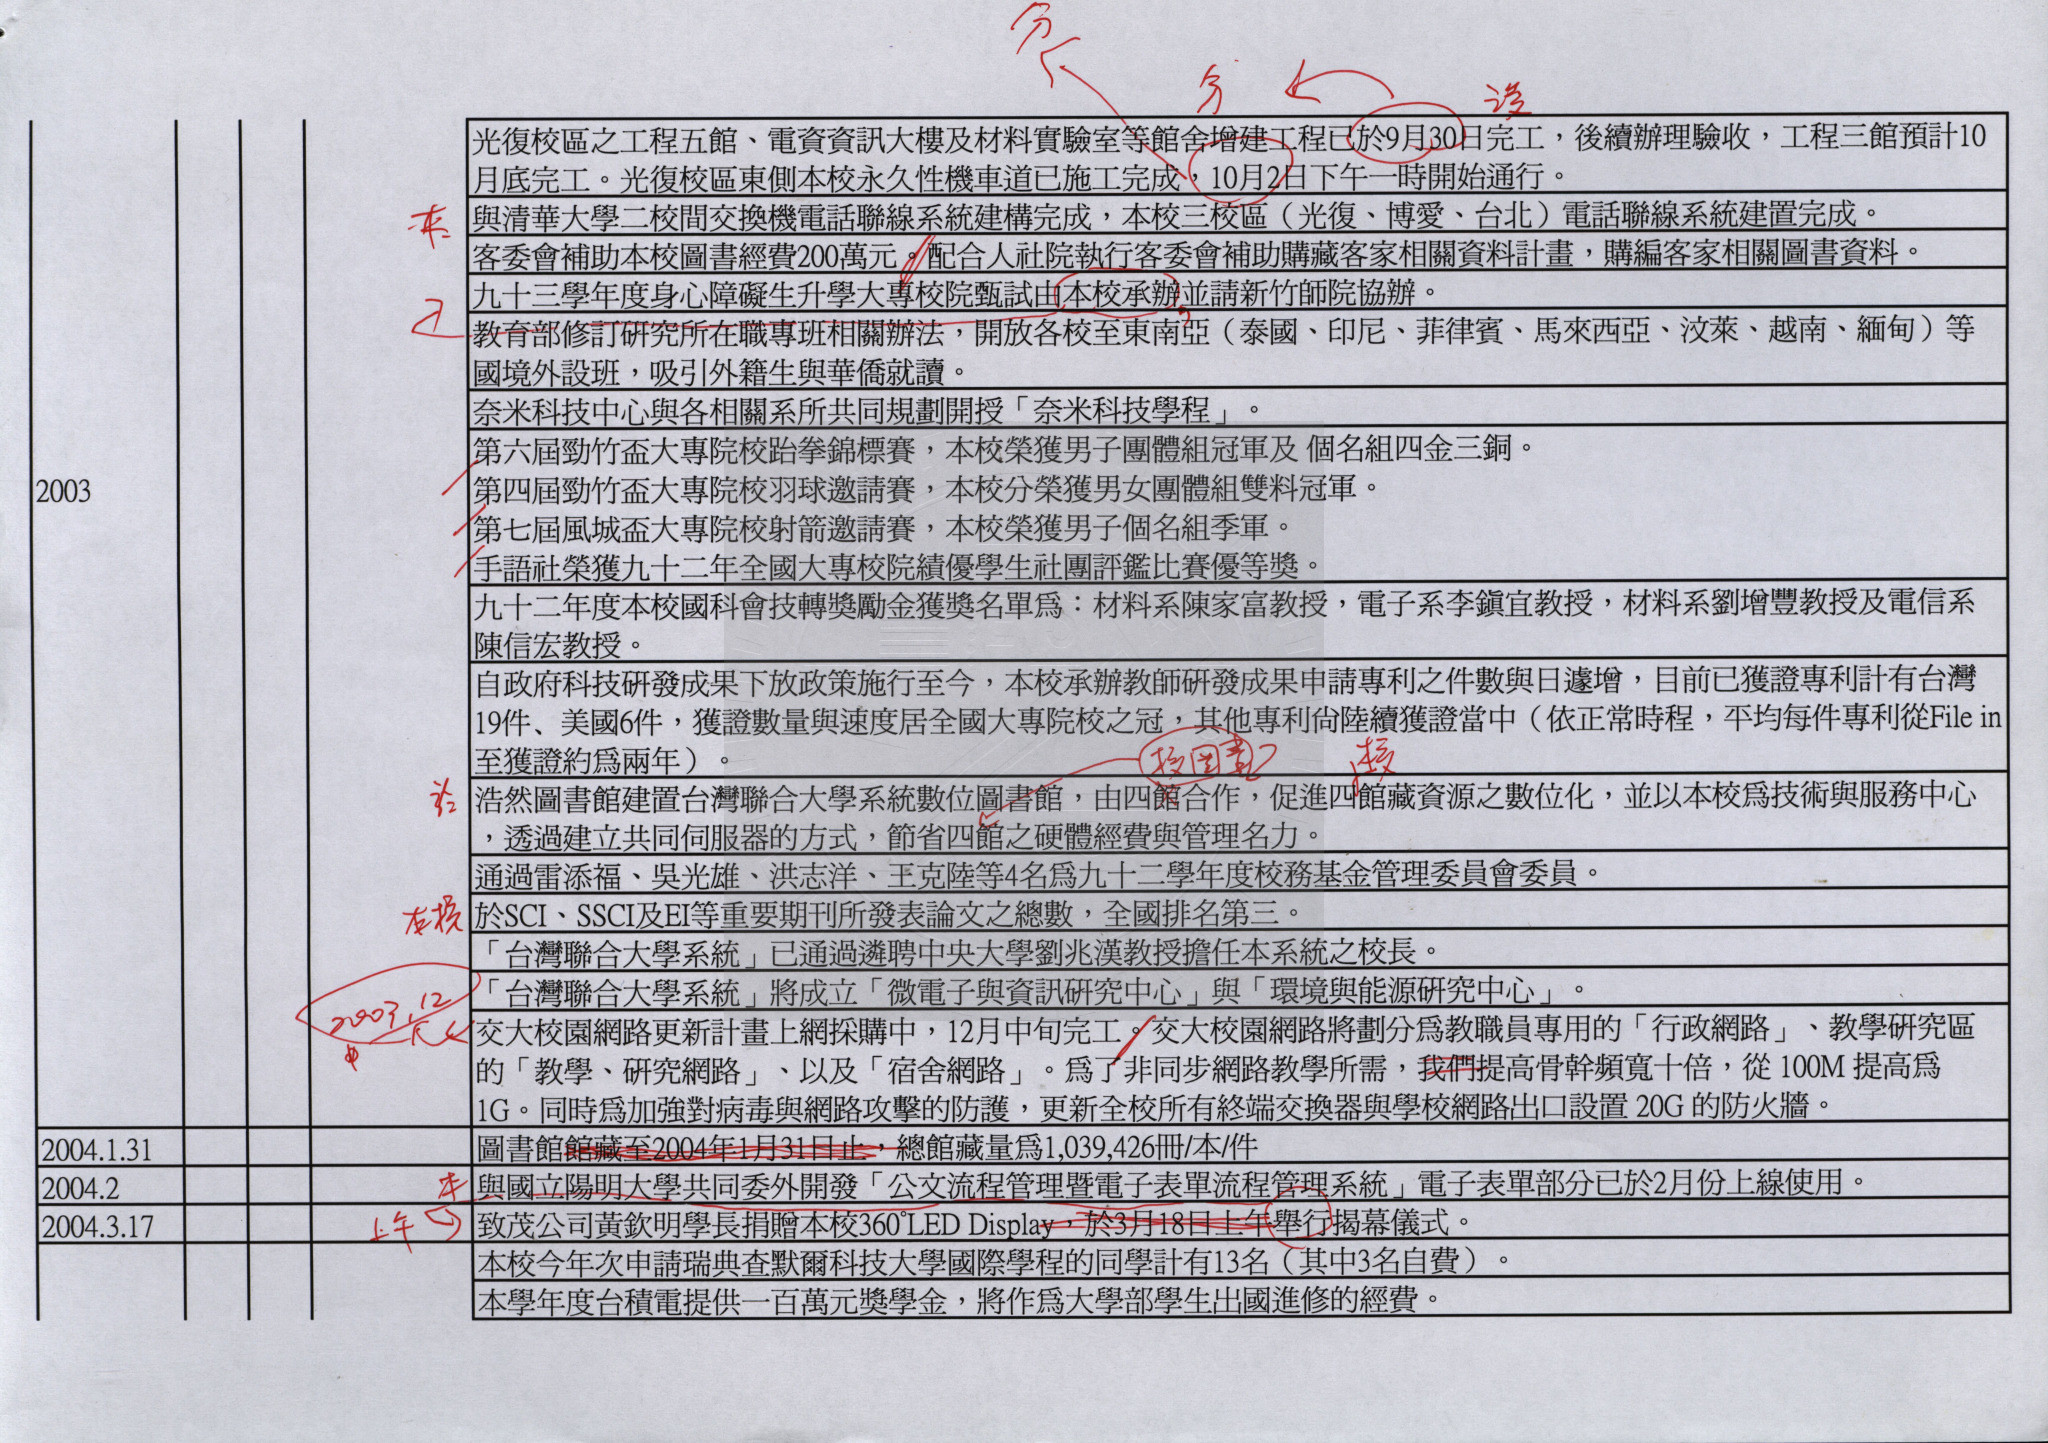 分
分 設
光復校區之工程五館、電資資訊大樓及材料實驗室等館舍增建工程已於9月30日完工，後續辦理驗收，工程三館預計10
月底完工。光復校區東側本校永久性機車道已施工完成，10月2日下午一時開始通行。
本
與清華大學二校間交換機電話聯線系統建構完成，本校三校區（光復、博愛、台北）電話聯線系統建置完成。
客委會補助本校圖書經費200萬元。配合人社院執行客委會補助購藏客家相關資料計畫，購編客家相關圖書資料。
九十三學年度身心障礙生升學大專校院甄試由本校承辦並請新竹師院協辦。
教育部修訂研究所在職專班相關辦法，開放各校至東南亞（泰國、印尼、菲律賓、馬來西亞、汶萊、越南、緬甸）等
國境外設班，吸引外籍生與華僑就讀。
奈米科技中心與各相關系所共同規劃開授「奈米科技學程」。
第六屆勁竹盃大專院校跆拳錦標賽，本校榮獲男子團體組冠軍及 個名組四金三銅。
2003
第四屆勁竹盃大專院校羽球邀請賽，本校分榮獲男女團體組雙料冠軍。
第七屆風城盃大專院校射箭邀請賽，本校榮獲男子個名組季軍。
手語社榮獲九十二年全國大專校院績優學生社團評鑑比賽優等獎。
九十二年度本校國科會技轉獎勵金獲獎名單為：材料系陳家富教授，電子系李鎮宜教授，材料系劉增豐教授及電信系
陳信宏教授。
自政府科技研發成果下放政策施行至今，本校承辦教師研發成果申請專利之件數與日遽增，目前已獲證專利計有台灣
19件、美國6件，獲證數量與速度居全國大專院校之冠，其他專利尚陸續獲證當中（依正常時程，平均每件專利從File in
至獲證約為兩年）。
校圖書 校
浩然圖書館建置台灣聯合大學系統數位圖書館，由四館合作，促進四館藏資源之數位化，並以本校為技術與服務中心
，透過建立共同伺服器的方式，節省四館之硬體經費與管理名力。
通過雷添福、吳光雄、洪志洋、王克陸等4名為九十二學年度校務基金管理委員會委員。
本校
於SCI、SSCI及EI等重要期刊所發表論文之總數，全國排名第三。
「台灣聯合大學系統」已通過遴聘中央大學劉兆漢教授擔任本系統之校長。
「台灣聯合大學系統」將成立「微電子與資訊研究中心」與「環境與能源研究中心」。
2003.12
交大校園網路更新計畫上網採購中，12月中旬完工。交大校園網路將劃分為教職員專用的「行政網路」、教學研究區
的「教學、研究網路」、以及「宿舍網路」。為了非同步網路教學所需，我們提高骨幹頻寬十倍，從 100M 提高為
1G。同時為加強對病毒與網路攻擊的防護，更新全校所有終端交換器與學校網路出口設置 20G 的防火牆。
2004.1.31 圖書館館藏至2004年1月31日止，總館藏量為1,039,426冊/本/件
2004.2 本 與國立陽明大學共同委外開發「公文流程管理暨電子表單流程管理系統」電子表單部分已於2月份上線使用。
2004.3.17 上午 致茂公司黃欽明學長捐贈本校360°LED Display，於3月18日上午舉行揭幕儀式。
本校今年次申請瑞典查默爾科技大學國際學程的同學計有13名（其中3名自費）。
本學年度台積電提供一百萬元獎學金，將作為大學部學生出國進修的經費。